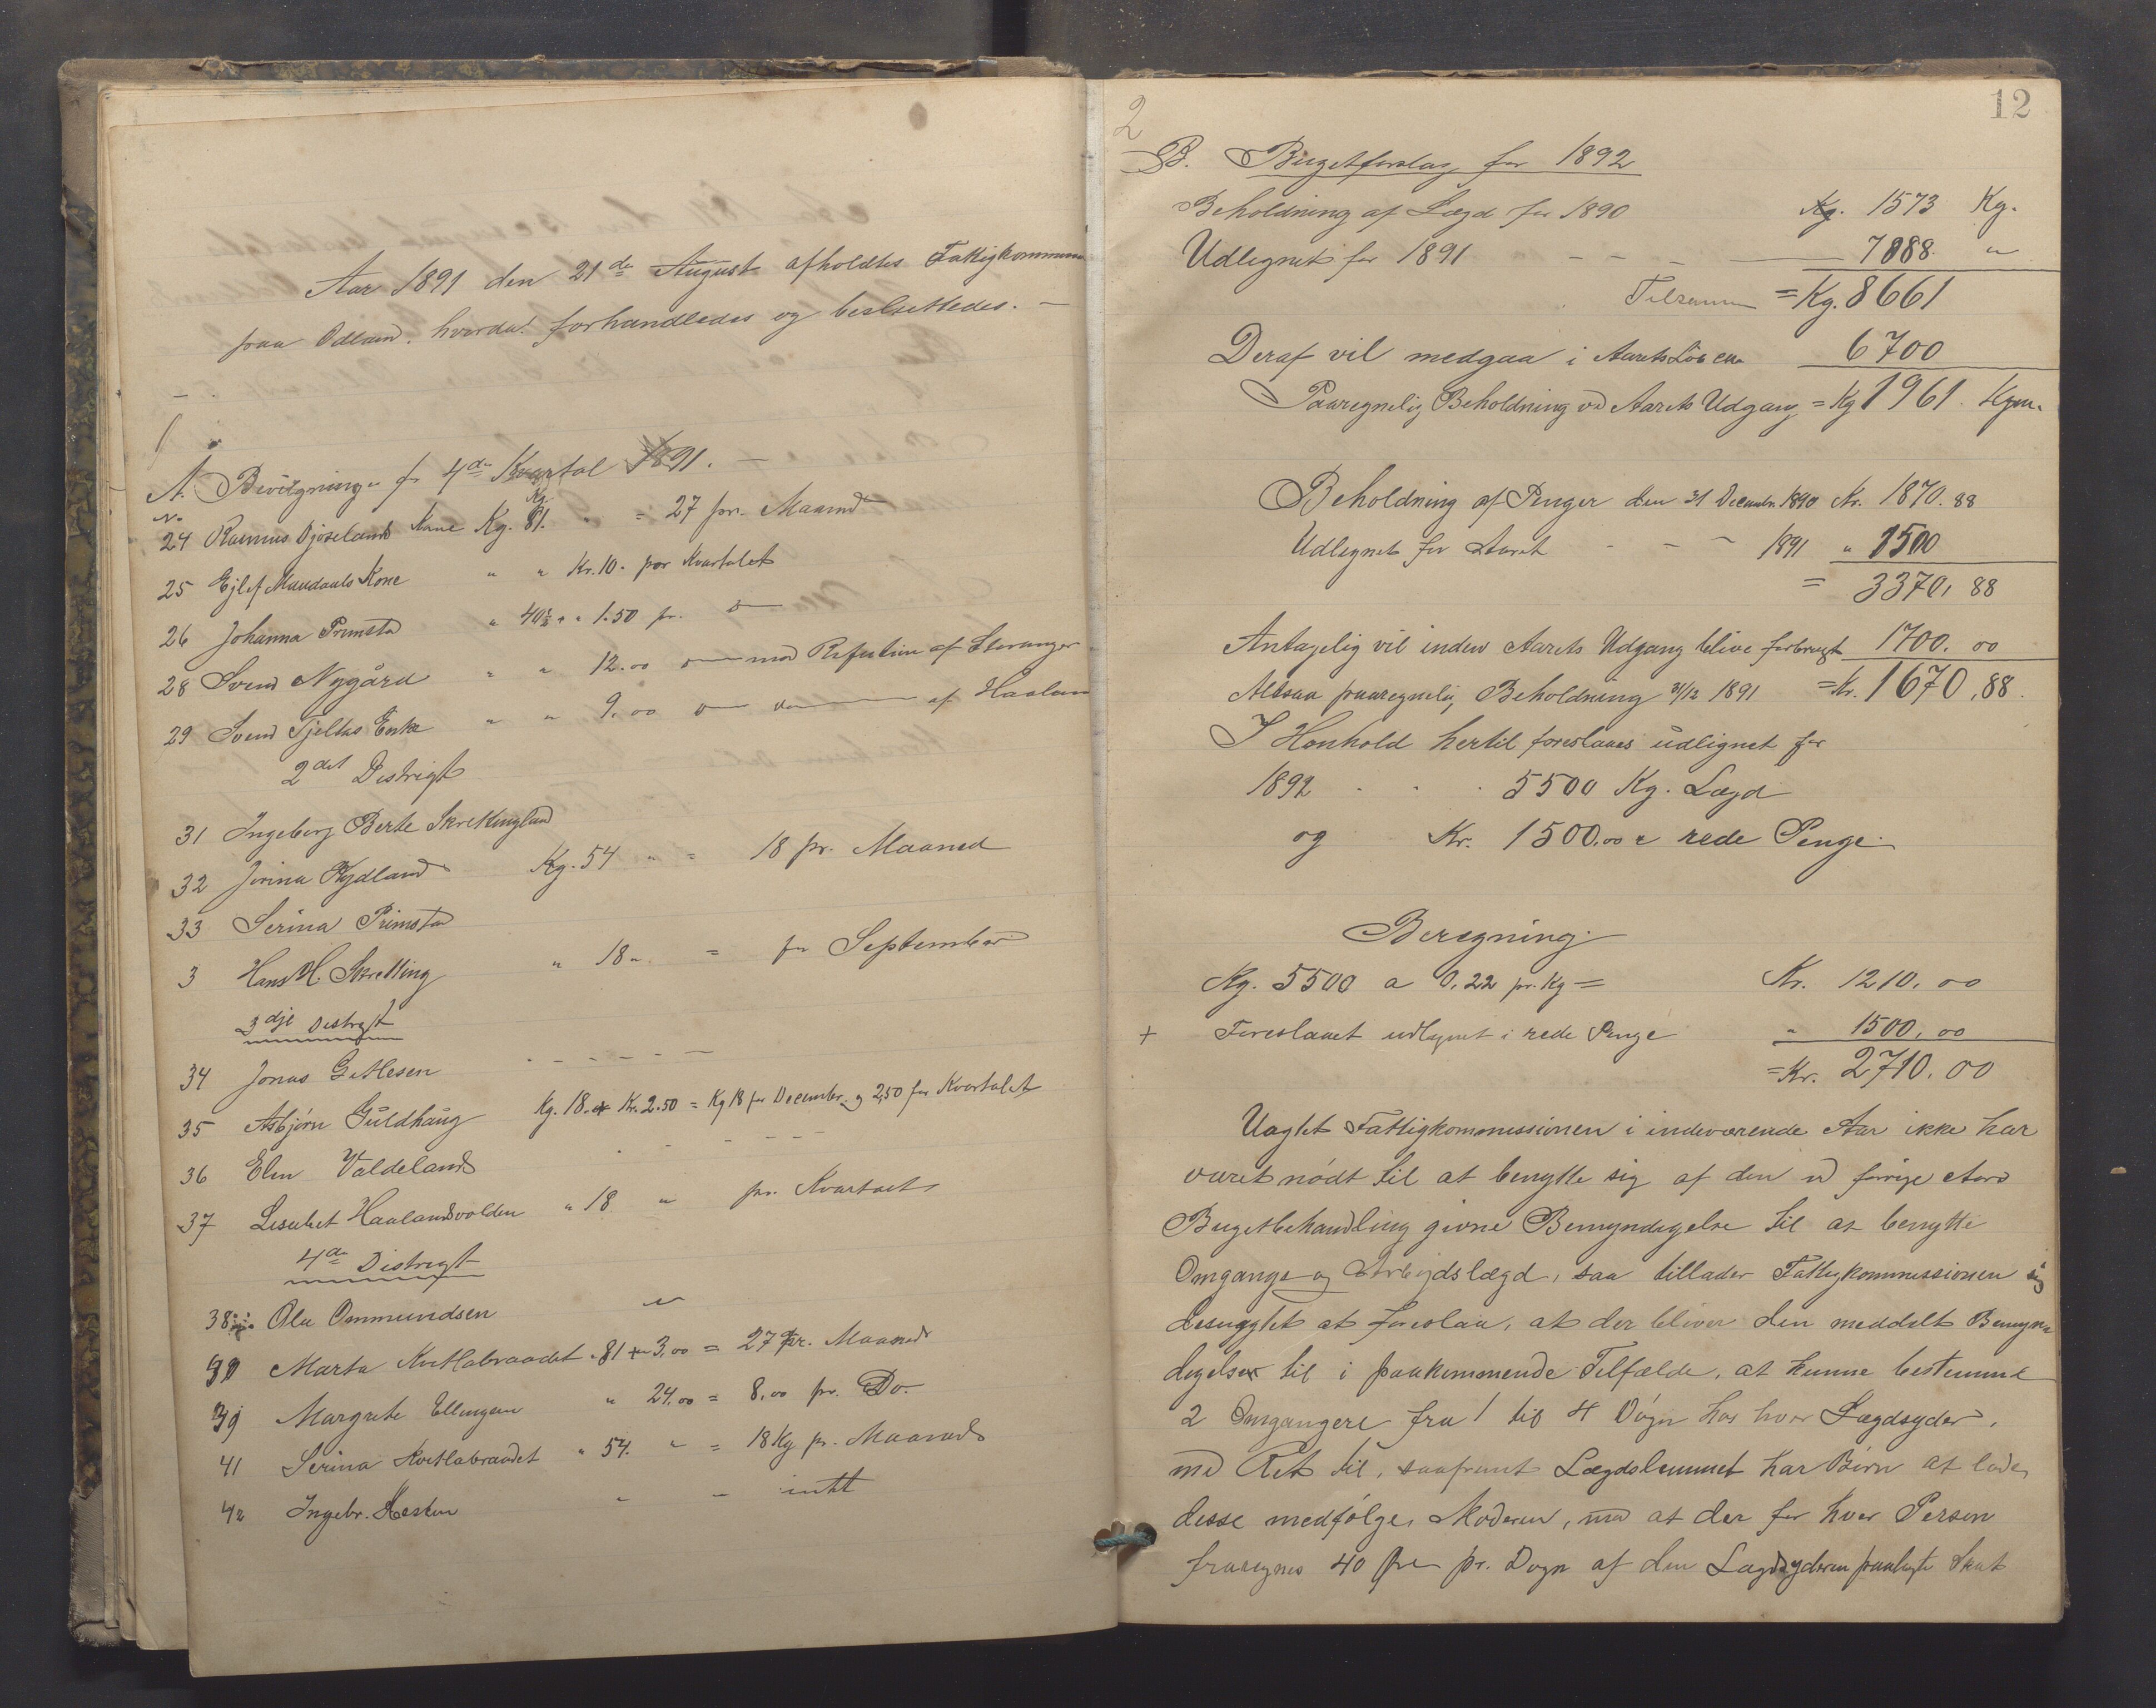 Aar 1891 den 21de August afholdtes Fattigkommun
paa Odland. hvorda! forhandledes og besluttedes. —
1
A. Bevilgninger for 4de Kvartal 1891. —
No
24 Rasmus Djøseland Kone Kg. 81. " = 27 pr. Maaned
25 Ejlef Maudaals Kone " " Kr. 10. pr Kvartalet
26 Johanna Primstad " 40½ + " 1.50 pr.
28 Svend Nygård " " 12.00 mod Refusion af Stavanger
29 Svend Tjeltas Enke " " 9.00 af Haaland
2det Distrigt
31 Ingeborg Berte Skrettingland
32 Jorina Rydland Kg. 54 " = 18 pr. Maaned
33 Serina Primstad
3 Hans H. Skretting " 18 " = for September
3dje Distrigt
34 Jonas Gitlesen - - - - - -
35 Asbjørn Guldhaug Kg. 18. + Kr. 2.50 = Kg 18 for December og 2,50 for Kvartalet
36 Elen Valdeland - - - -
37 Lisabet Haalandsvolden " 18 " pr. Kvartalet
4de Distrigt
38 Ole Ommundsen "
39 Marta Kvitlabraadet " 81 + 3,00 = 27 pr. Maaned
39 Margrete Ellingsen " 24,00 = 8,00 pr. Do.
41 Serina Kvitlabraadet " 54. " = 18 Kg pr. Maaned
42 Ingebr. Hesten " - intet
12
2
B. Bugetforslag for 1892
Beholdning af Lægd for 1890 Kg. 1573 Kg.
Udlignet for 1891 - - - 7088. "
Tilsammen = Kg. 8661
Deraf vil medgaa i Aarets Løb ca 6700
Paaregnelig Beholdning ved Aarets Udgang = Kg 1961. Kgm.
Beholdning af Penger den 31 Decemb. 1890 Kr. 1870.88
Udlignet for Aaret - - - 1891 " 1500
= 3370,88
Antagelig vil inden Aarets Udgang blive forbrugt 1700.00
Altsaa paaregnelig Beholdning 31/12 1891 = Kr. 1670,88.
I Henhold hertil foreslaaes udlignet for
1892 . . . 5500 Kg. Lægd
og Kr. 1500.00 i rede Penge.
Beregning.
Kg. 5500 a 0.22 pr. Kg = Kr. 1210.00
+ Foreslaaet udlignet i rede Penge " 1500,00
= Kr. 2710.00
Uagtet Fattigkommissionen i indeværende Aar ikke har
været nødt til at benytte sig af den ved forrige Aars
Bugetbehandling givne Bemyndigelse til at benytte
Omgangs og Arbejdslægd, saa tillader Fattigkommissionen sig
desuagtet at foreslaa, at der bliver den meddelt Bemyn
digelse til i paakommende Tilfælde, at kunne bestemme
2 Omgangere fra 1 til 4 Døgn hos hver Lægdsyder,
med Ret til, saafremt Lægdslemmet har Børn at lade
disse medfølge Moderen, med at der for hver Person
fraregnes 40 Øre pr. Døgn af den Lægdsyderen paalagte Skat